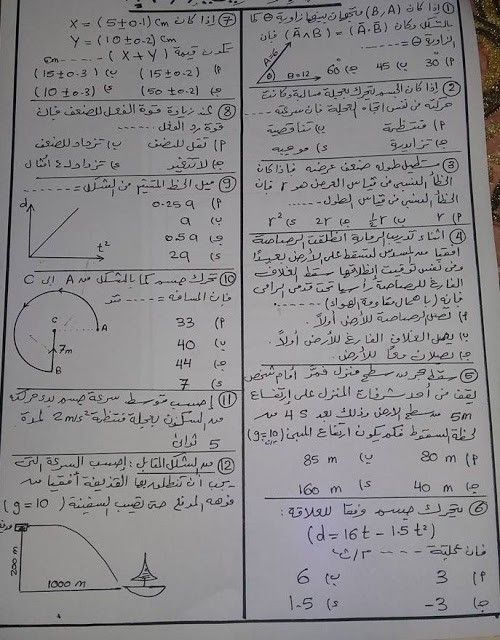 ① إذا كان (B/A) متجهان بينهما زاوية θ كما
بالشكل وكان (A∧B) = (A·B) فإن
الزاوية θ = ........
A=6
θ
B=12
أ) 30° ب) 45 ج) 60°
② إذا كان الجسم يتحرك بعجلة سالبة وكانت
حركته من نفس اتجاه العجلة فإن سرعته ....
أ) منتظمة ب) تناقصية
ج) تزايدية د) موجبه
③ مستطيل طوله ضعف عرضه فإذا كان
الخطأ النسبى من قياس العرض هو r فإن
الخطأ النسبى من قياس الطول .......
أ) r ب) ½r ج) 2r د) r²
④ اثناء تدريب الرماية انطلقت الرصاصة
أفقيا من المسدس لتسقط على الأرض بعيدًا
ومن نفس توقيت انطلاقها سقط الغلاف
الفارغ للرصاصة رأسيا تحت قدمى الرامى
فإنه (بإهمال مقاومة الهواء) .......
أ) تصل الرصاصة للأرض أولاً.
ب) يصل الغلاف الفارغ للأرض أولاً.
ج) يصلان معًا للأرض.
⑤ سقط حجر من سطح منزل فمر أمام شخص
يقف من أحد شرفات المنزل على إرتفاع
5m من سطح الارض وذلك بعد 4 s من
لحظة السقوط فكم يكون ارتفاع المبنى (g=10)
أ) 80 m ب) 85 m
ج) 40 m د) 160 m
⑥ يتحرك جسم وفقا للعلاقة :
(d = 16t - 1.5t²)
فإن عجلته = ---- م/ث²
أ) 3 ب) 6
ج) -3 د) 1.5
⑦ إذا كان X = (5 ± 0.1) Cm
Y = (10 ± 0.2) Cm
تكون قيمة (X + Y) ........ cm
أ) (15 ± 0.2) ب) (15 ± 0.3)
ج) (50 ± 0.2) د) (10 ± 0.3)
⑧ عند زيادة قوة الفعل للضعف فإن
قوة رد الفعل ........
أ) تقل للنصف ب) تزداد للضعف
ج) لا تتغير د) تزداد 4 امثال
⑨ ميل الخط المستقيم من الشكل = ......
d
t²
أ) 0.25 a
ب) a
ج) 0.5 a
د) 2a
⑩ تحرك جسم كما بالشكل من A إلى C
فإن المسافة = ...... متر
C
A
7m
B
أ) 33
ب) 40
ج) 44
د) 7
⑪ إحسب متوسط سرعة جسم بدء حركته
من السكون بعجلة منتظمة 2m/s² لمدة
5 ثوان
⑫ من الشكل المقابل : إحسب السرعة التى
يجب أن تنطلق بها القذيفة أفقيا من
فوهه المدفع حتى تصيب السفينة (g = 10)
200 m
1000 m